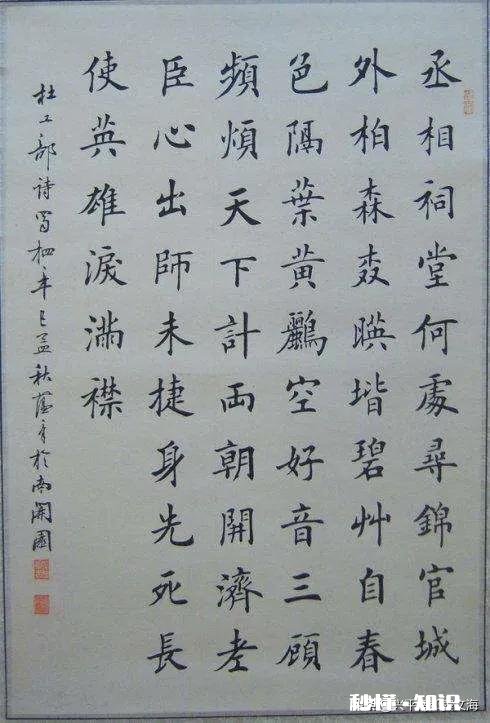 丞相祠堂何處尋錦官城
外柏森森暎堦碧艸自春
色隔葉黄鸝空好音三顧
頻煩天下計両朝開濟老
臣心出師未捷身先死長
使英雄淚滿襟
杜工部詩蜀相辛巳孟秋於南開園
秒懂·知识